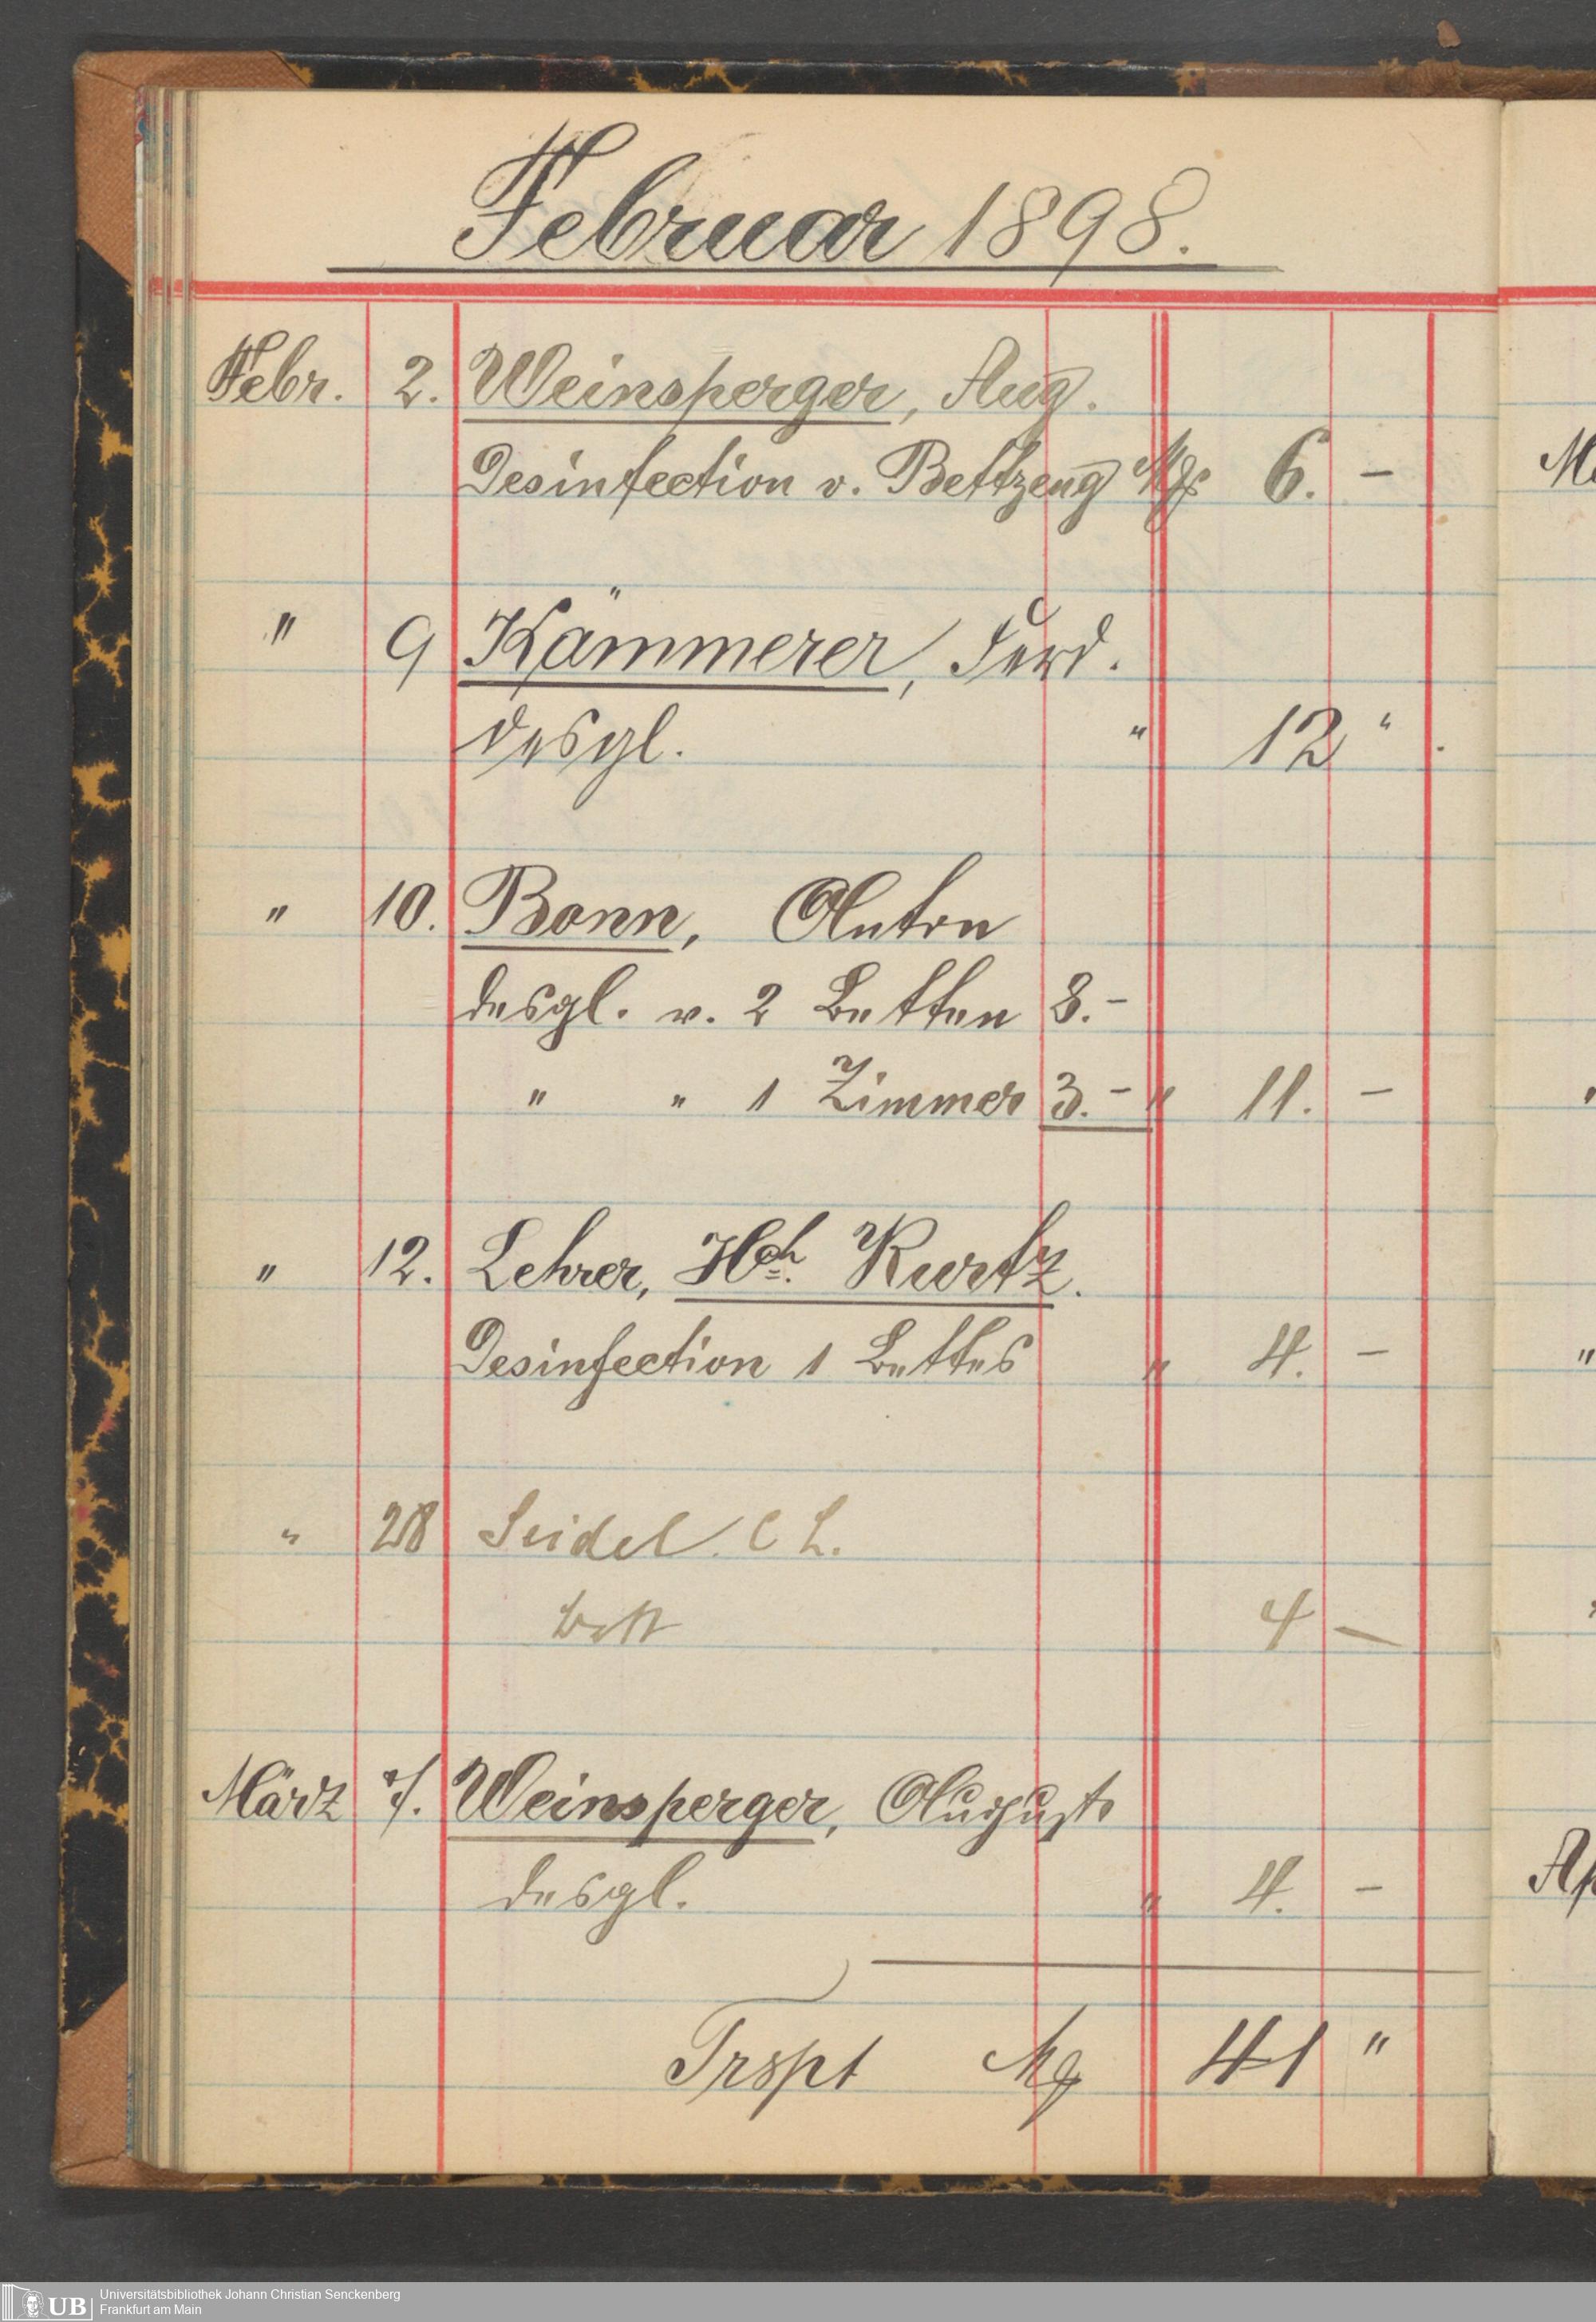 Februar 1898.
Febr. 2. Weinsperger, Aug.
Desinfection v. Bettzeug Mk 6. –
" 9 Kämmerer, Ferd.
desgl. " 12 "
" 10. Bonn, Anton
desgl. v. 2 Betten 8.–
" " 1 Zimmer 3.– " 11. –
" 12. Lehrer, Hch. Kurtz.
Desinfection 1 Bettes " 4. –
" 28 Seidel C L.
Bett 4 –
März 7. Weinsperger, August
desgl. " 4. –
Trspt Mk 41 "
UB Universitätsbibliothek Johann Christian Senckenberg
Frankfurt am Main